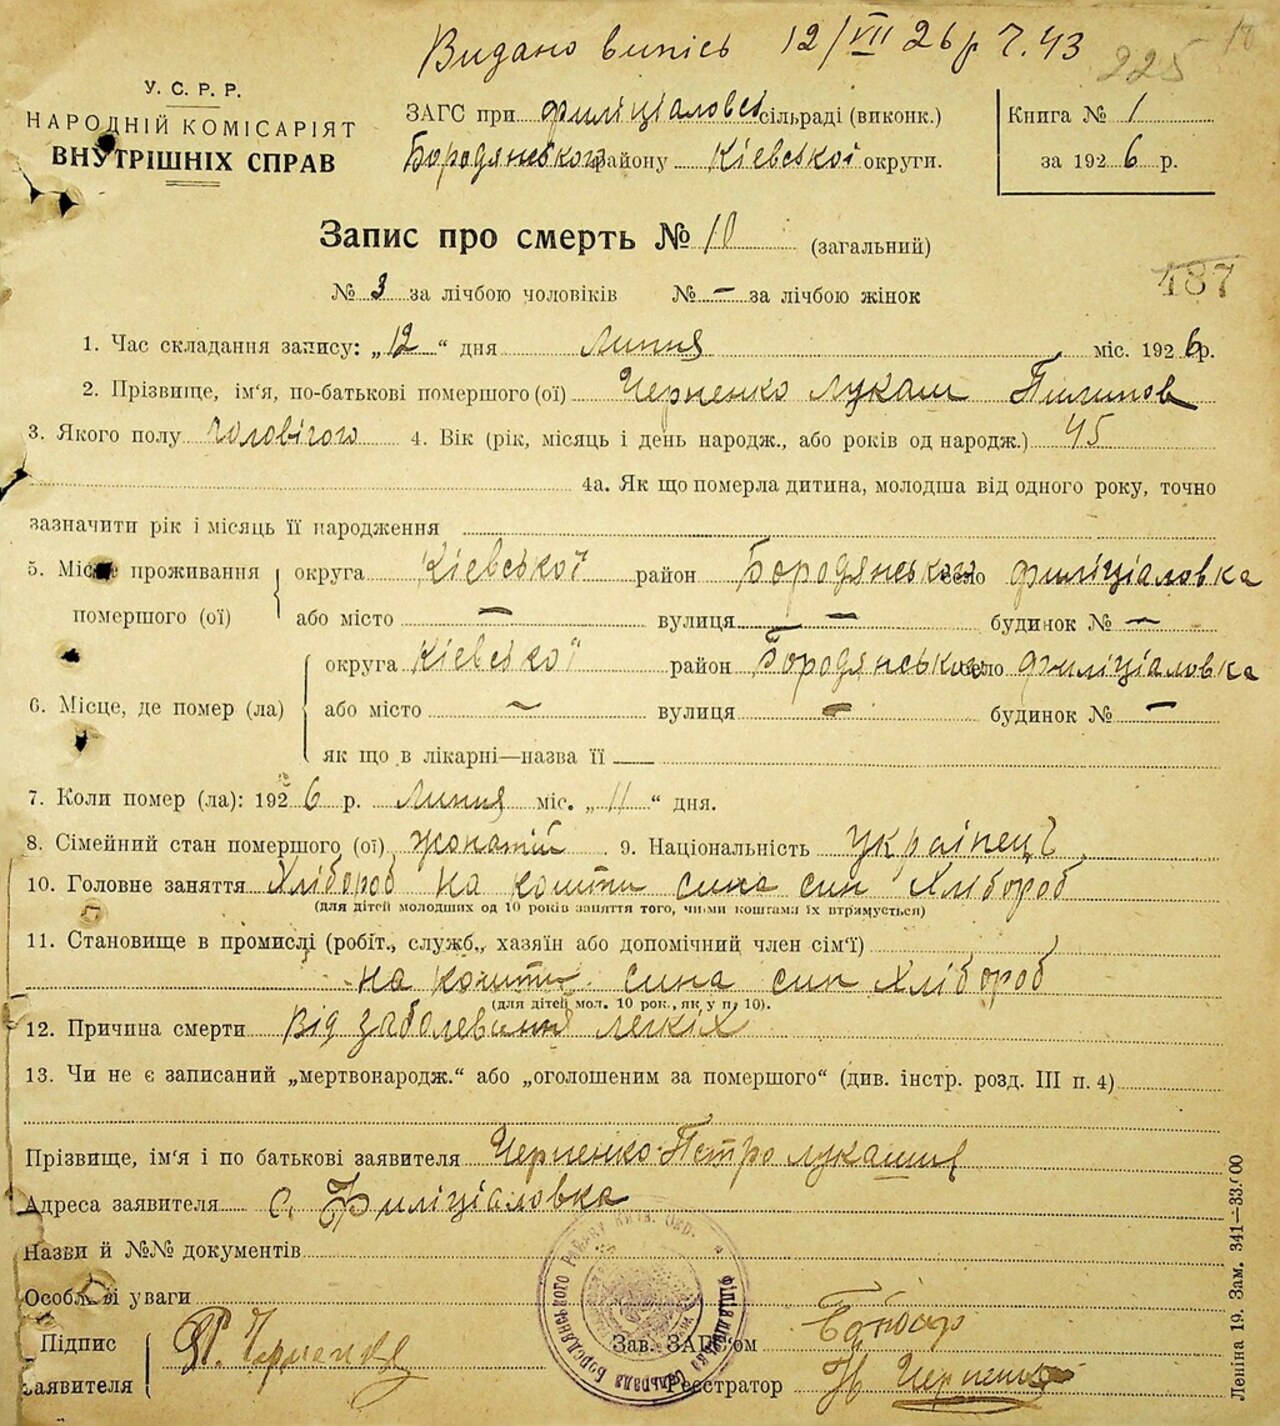 Видано випісь 12/VII 26 р Ч. 43
225
У. С. Р. Р.
НАРОДНІЙ КОМІСАРІЯТ
ВНУТРІШНІХ СПРАВ
ЗАГС при Филіціаловсь сільраді (виконк.)
Бородянського району Кіевської округи.
Книга № 1
за 1926 р.
Запис про смерть № 10 (загальний)
487
№ 3 за лічбою чоловіків № — за лічбою жінок
1. Час складання запису: „12“ дня Липня міс. 1926 р.
2. Прізвище, ім‘я, по-батькові помершого (ої) Черненко Лукаш Пилипов
3. Якого полу чоловічого 4. Вік (рік, місяць і день народж., або років од народж.) 45
4а. Як що померла дитина, молодша від одного року, точно
зазначити рік і місяць її народження
5. Місце проживання помершого (ої)
округа Кіевської район Бородянського село Филіціаловка
або місто — вулиця — будинок № —
6. Місце, де помер (ла)
округа Кіевської район Бородянського село Филіціаловка
або місто — вулиця — будинок № —
як що в лікарні—назва її
7. Коли помер (ла): 1926 р. Липня міс. „11“ дня.
8. Сімейний стан помершого (ої) жонатій 9. Національність українець
10. Головне заняття Хлібороб на кошти сина син Хлібороб
(для дітей молодших од 10 років заняття того, чиїми коштами їх втримується)
11. Становище в промислі (робіт., служб., хазяїн або допомічний член сім‘ї)
на кошти сина син Хлібороб
(для дітей мол. 10 рок., як у п. 10).
12. Причина смерти Від заболевання легкіх
13. Чи не є записаний „мертвонародж.“ або „оголошеним за помершого“ (див. інстр. розд. III п. 4)
Прізвище, ім‘я і по батькові заявителя Черненко Петро Лукашив
Адреса заявителя с. Филіціаловка
Назви й №№ документів
Особливі уваги
Підпис заявителя П. Черненко
Зав. ЗАГС‘ом Бондар
Реєстратор Черненко
Леніна 19. Зам. 341—33.000